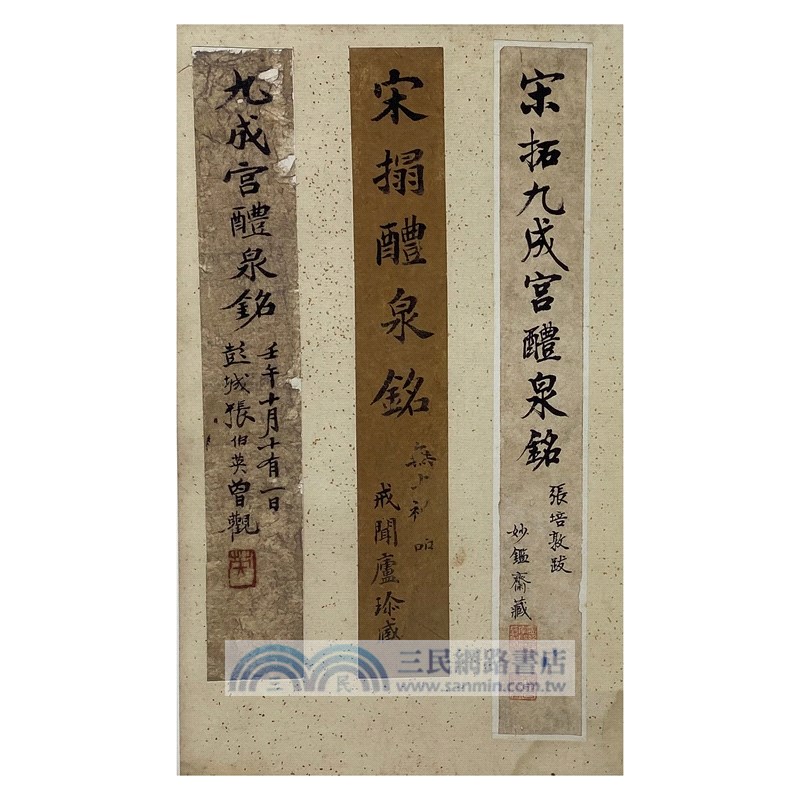 宋拓九成宮醴泉銘
張培敦跋
妙鑑齋藏
宋搨醴泉銘
戒聞廬珍藏
九成宮醴泉銘
壬午十月十有一日
彭城張伯英曾觀
三民網路書店
www.sanmin.com.tw
三民